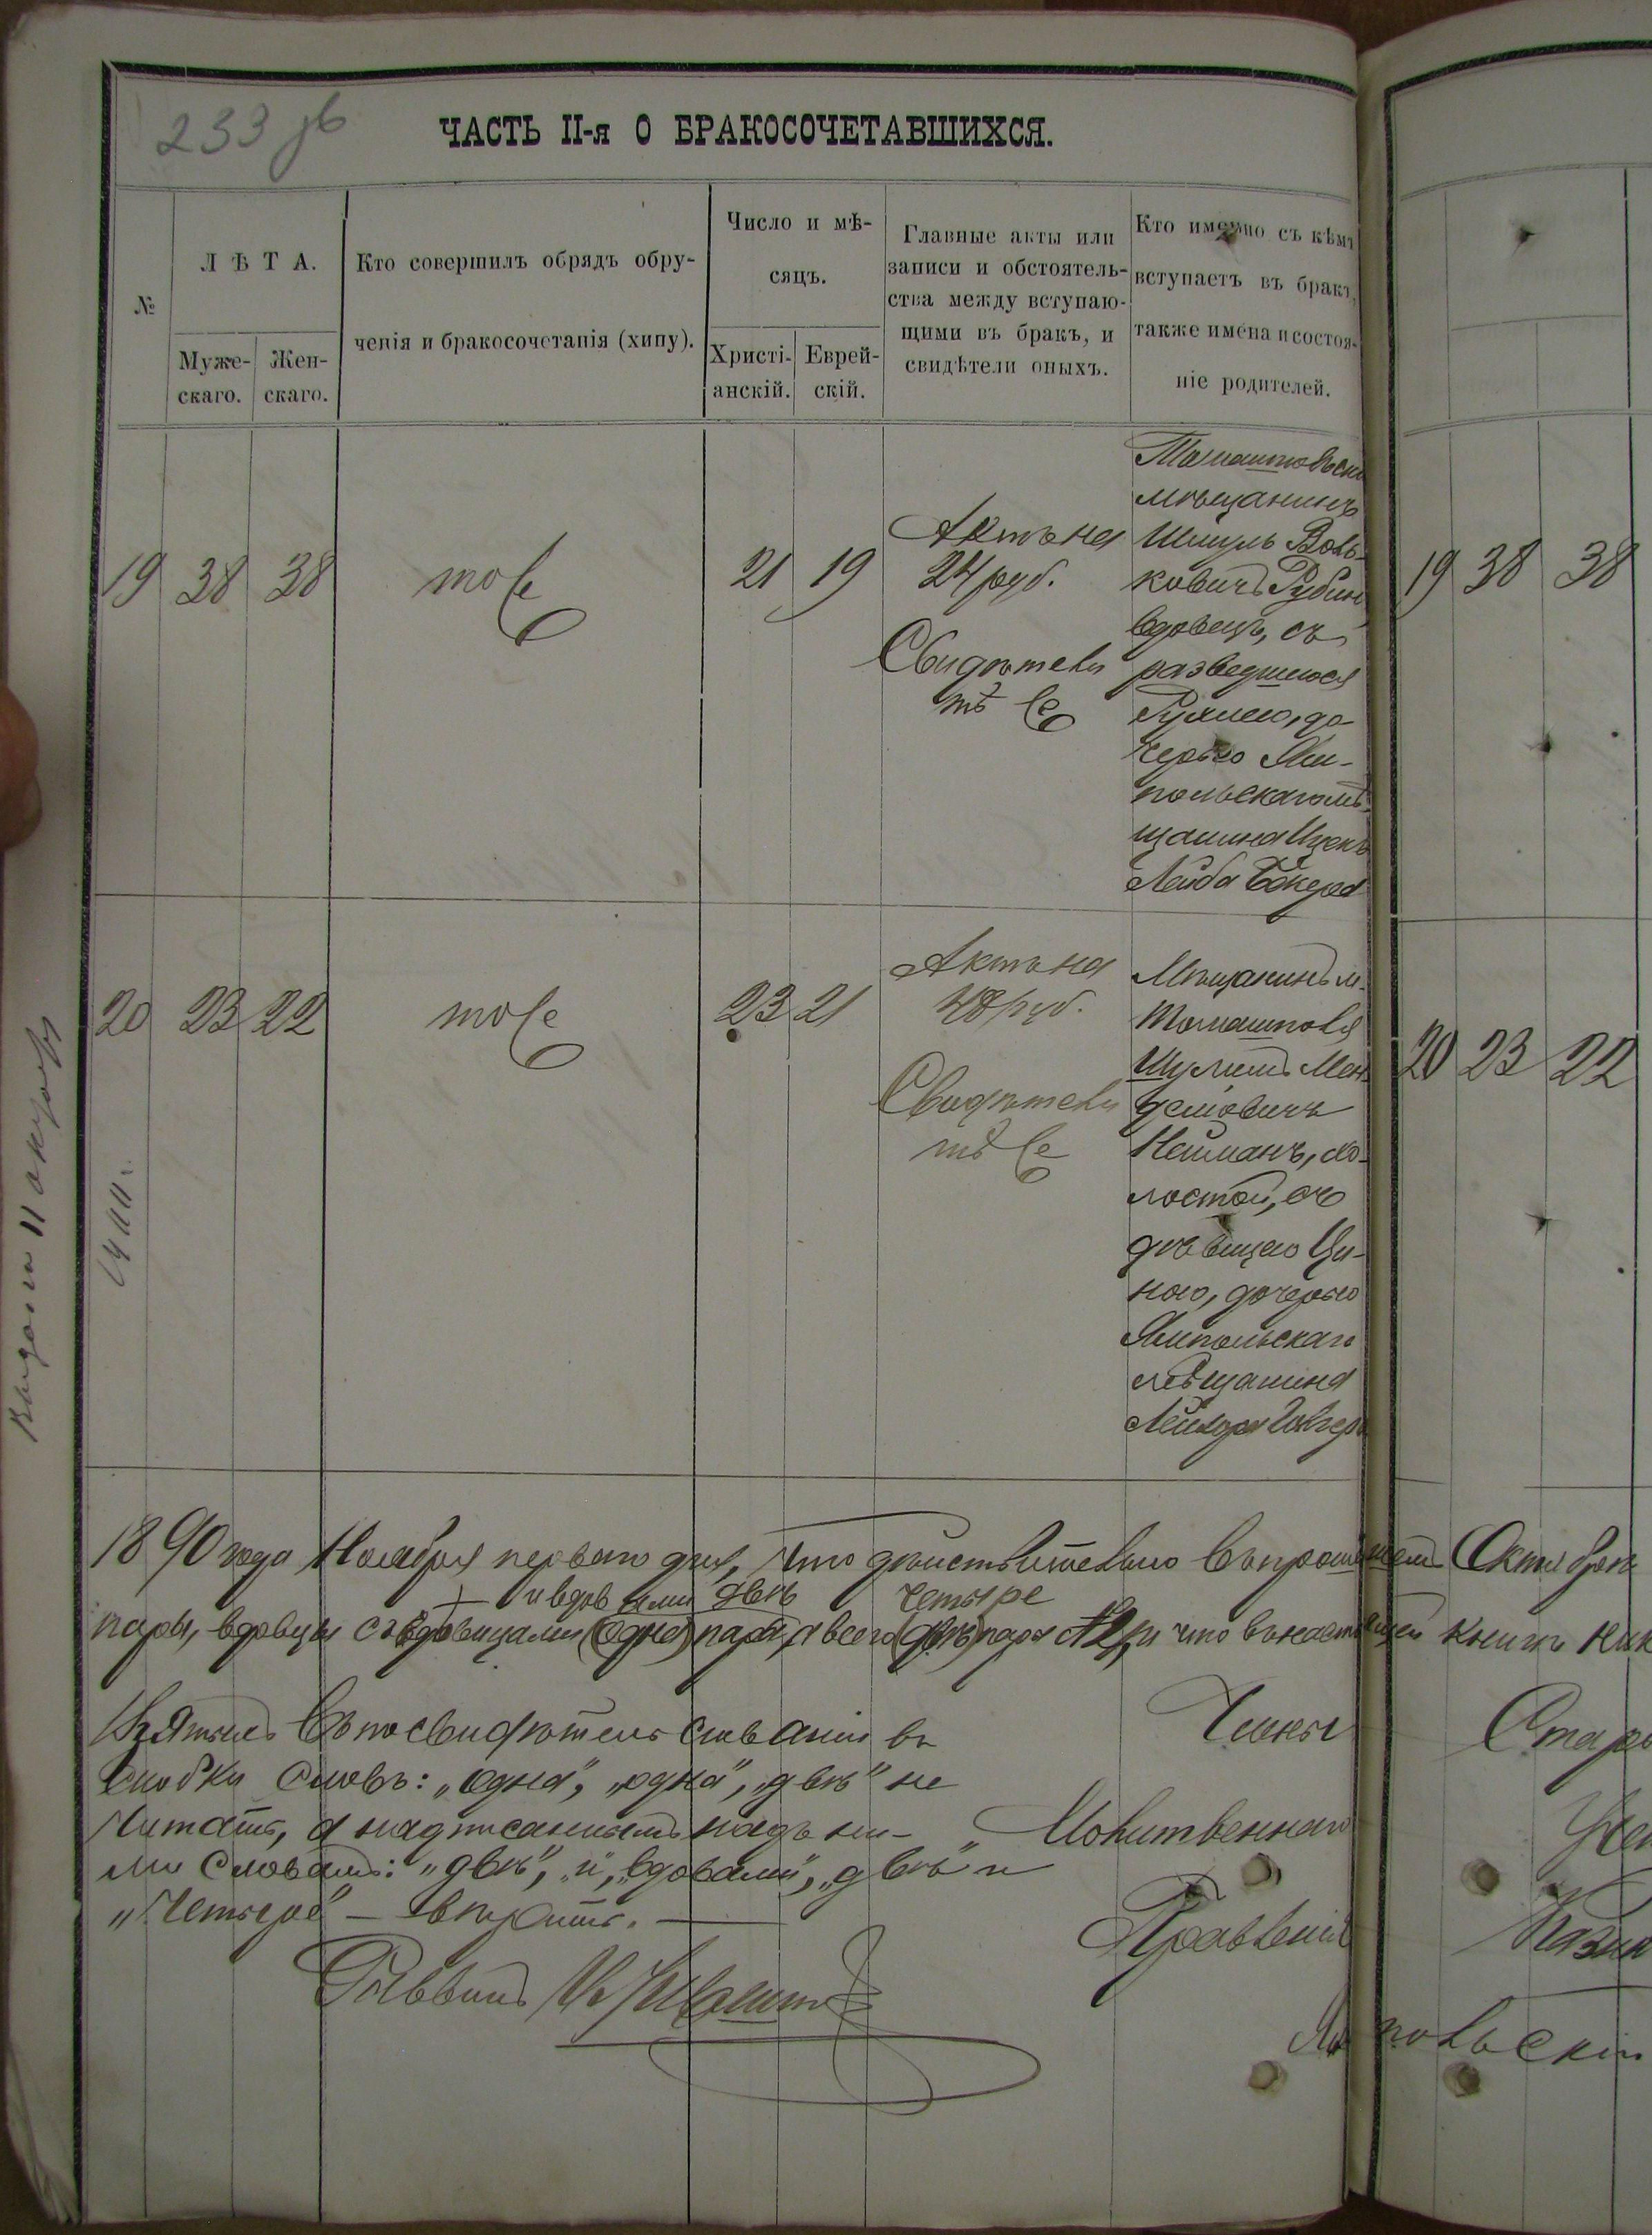 233 об
ЧАСТЬ II-я О БРАКОСОЧЕТАВШИХСЯ.
№
ЛѢТА.
Муже-
скаго.
Жен-
скаго.
Кто совершилъ обрядъ обру-
ченія и бракосочетанія (хипу).
Число и мѣ-
сяцъ.
Христі-
анскій.
Еврей-
скій.
Главные акты или
записи и обстоятель-
ства между вступаю-
щими въ бракъ, и
свидѣтели оныхъ.
Кто именно съ кѣмъ
вступаетъ въ бракъ,
также имена и состоя-
ніе родителей.
19 38 38
тоже
21 19
Актъ на
24 руб.
Свидѣтели
тѣ же
Томашпольскій
мѣщанинъ
Шмуль Воль-
ковичъ Рубин
вдовецъ, съ
разведшеюся
Рухлею, до-
черью Ям-
польскаго мѣ-
щанина Ицекъ
Лейба
20 23 22
тоже
23 21
Актъ на
48 руб.
Свидѣтели
тѣ же
Мѣщанинъ м.
Томашполя
Шулимъ Мен-
делiовичъ
Нейманъ, хо-
лостой, съ
дѣвицею Ци-
пою, дочерью
Ямпольскаго
мѣщанина
19 38 38
20 23 22
Выдана 11 августа
1911 г.
1890 года Ноября перваго дня, что дѣйствительно въ прошедшемъ Октябрѣ
и вдовами двѣ четыре
пары, вдовцы съ вдовицами (одна) пара, а всего (двѣ) пары и что въ настоящей книгѣ
Взятыхъ въ посвидѣтельствованіи въ
скобки словъ: „одна", „одна", „двѣ" не
читать, а надписаннымъ надъ ни-
ми словамъ: „двѣ", „и", „вдовами", „двѣ" и
„четыре" — вѣрить. —
Раввинъ
Члены
Молитвеннаго
Правленія
Стар
Уче
Казн
Ямпольскій